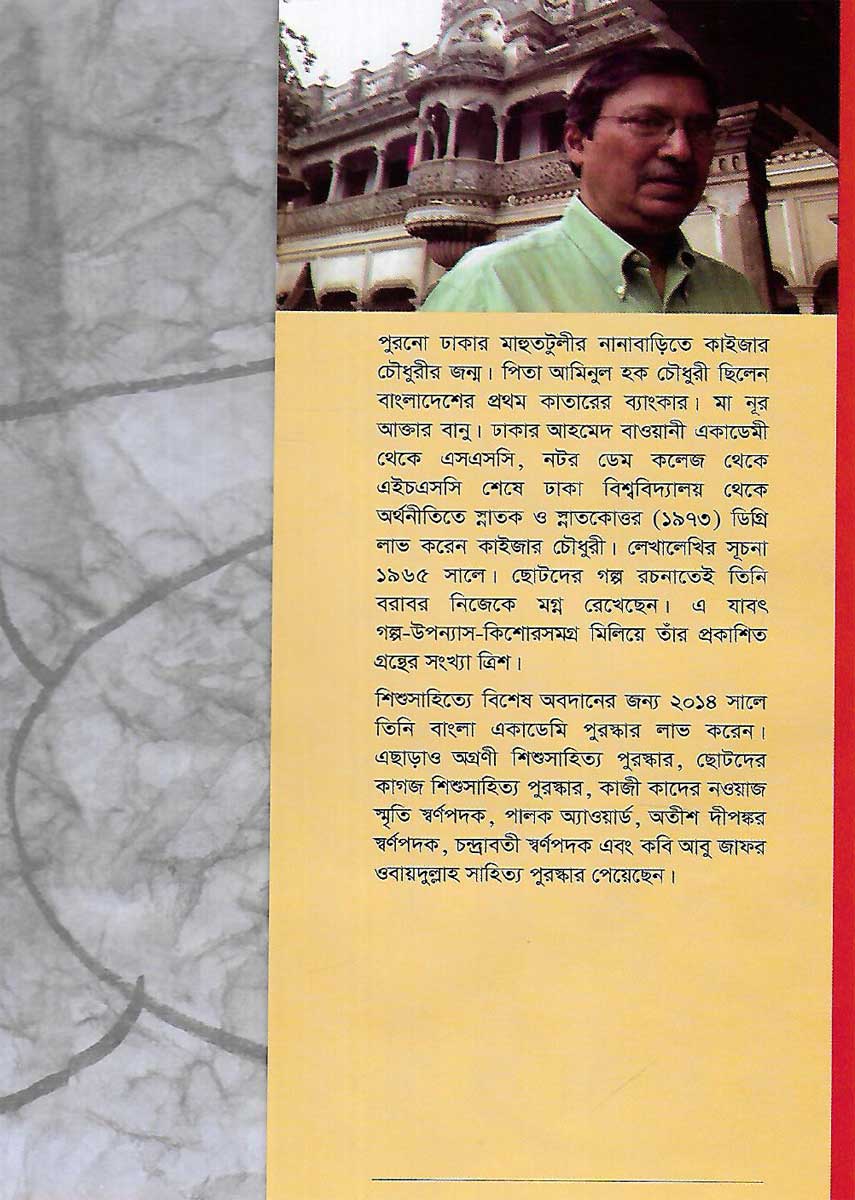 পুরনো ঢাকার মাহুতটুলীর নানাবাড়িতে কাইজার
চৌধুরীর জন্ম। পিতা আমিনুল হক চৌধুরী ছিলেন
বাংলাদেশের প্রথম কাতারের ব্যাংকার। মা নূর
আক্তার বানু। ঢাকার আহমেদ বাওয়ানী একাডেমী
থেকে এসএসসি, নটর ডেম কলেজ থেকে
এইচএসসি শেষে ঢাকা বিশ্ববিদ্যালয় থেকে
অর্থনীতিতে স্নাতক ও স্নাতকোত্তর (১৯৭৩) ডিগ্রি
লাভ করেন কাইজার চৌধুরী। লেখালেখির সূচনা
১৯৬৫ সালে। ছোটদের গল্প রচনাতেই তিনি
বরাবর নিজেকে মগ্ন রেখেছেন। এ যাবৎ
গল্প-উপন্যাস-কিশোরসমগ্র মিলিয়ে তাঁর প্রকাশিত
গ্রন্থের সংখ্যা ত্রিশ।
শিশুসাহিত্যে বিশেষ অবদানের জন্য ২০১৪ সালে
তিনি বাংলা একাডেমি পুরস্কার লাভ করেন।
এছাড়াও অগ্রণী শিশুসাহিত্য পুরস্কার, ছোটদের
কাগজ শিশুসাহিত্য পুরস্কার, কাজী কাদের নওয়াজ
স্মৃতি স্বর্ণপদক, পালক অ্যাওয়ার্ড, অতীশ দীপঙ্কর
স্বর্ণপদক, চন্দ্রাবতী স্বর্ণপদক এবং কবি আবু জাফর
ওবায়দুল্লাহ সাহিত্য পুরস্কার পেয়েছেন।